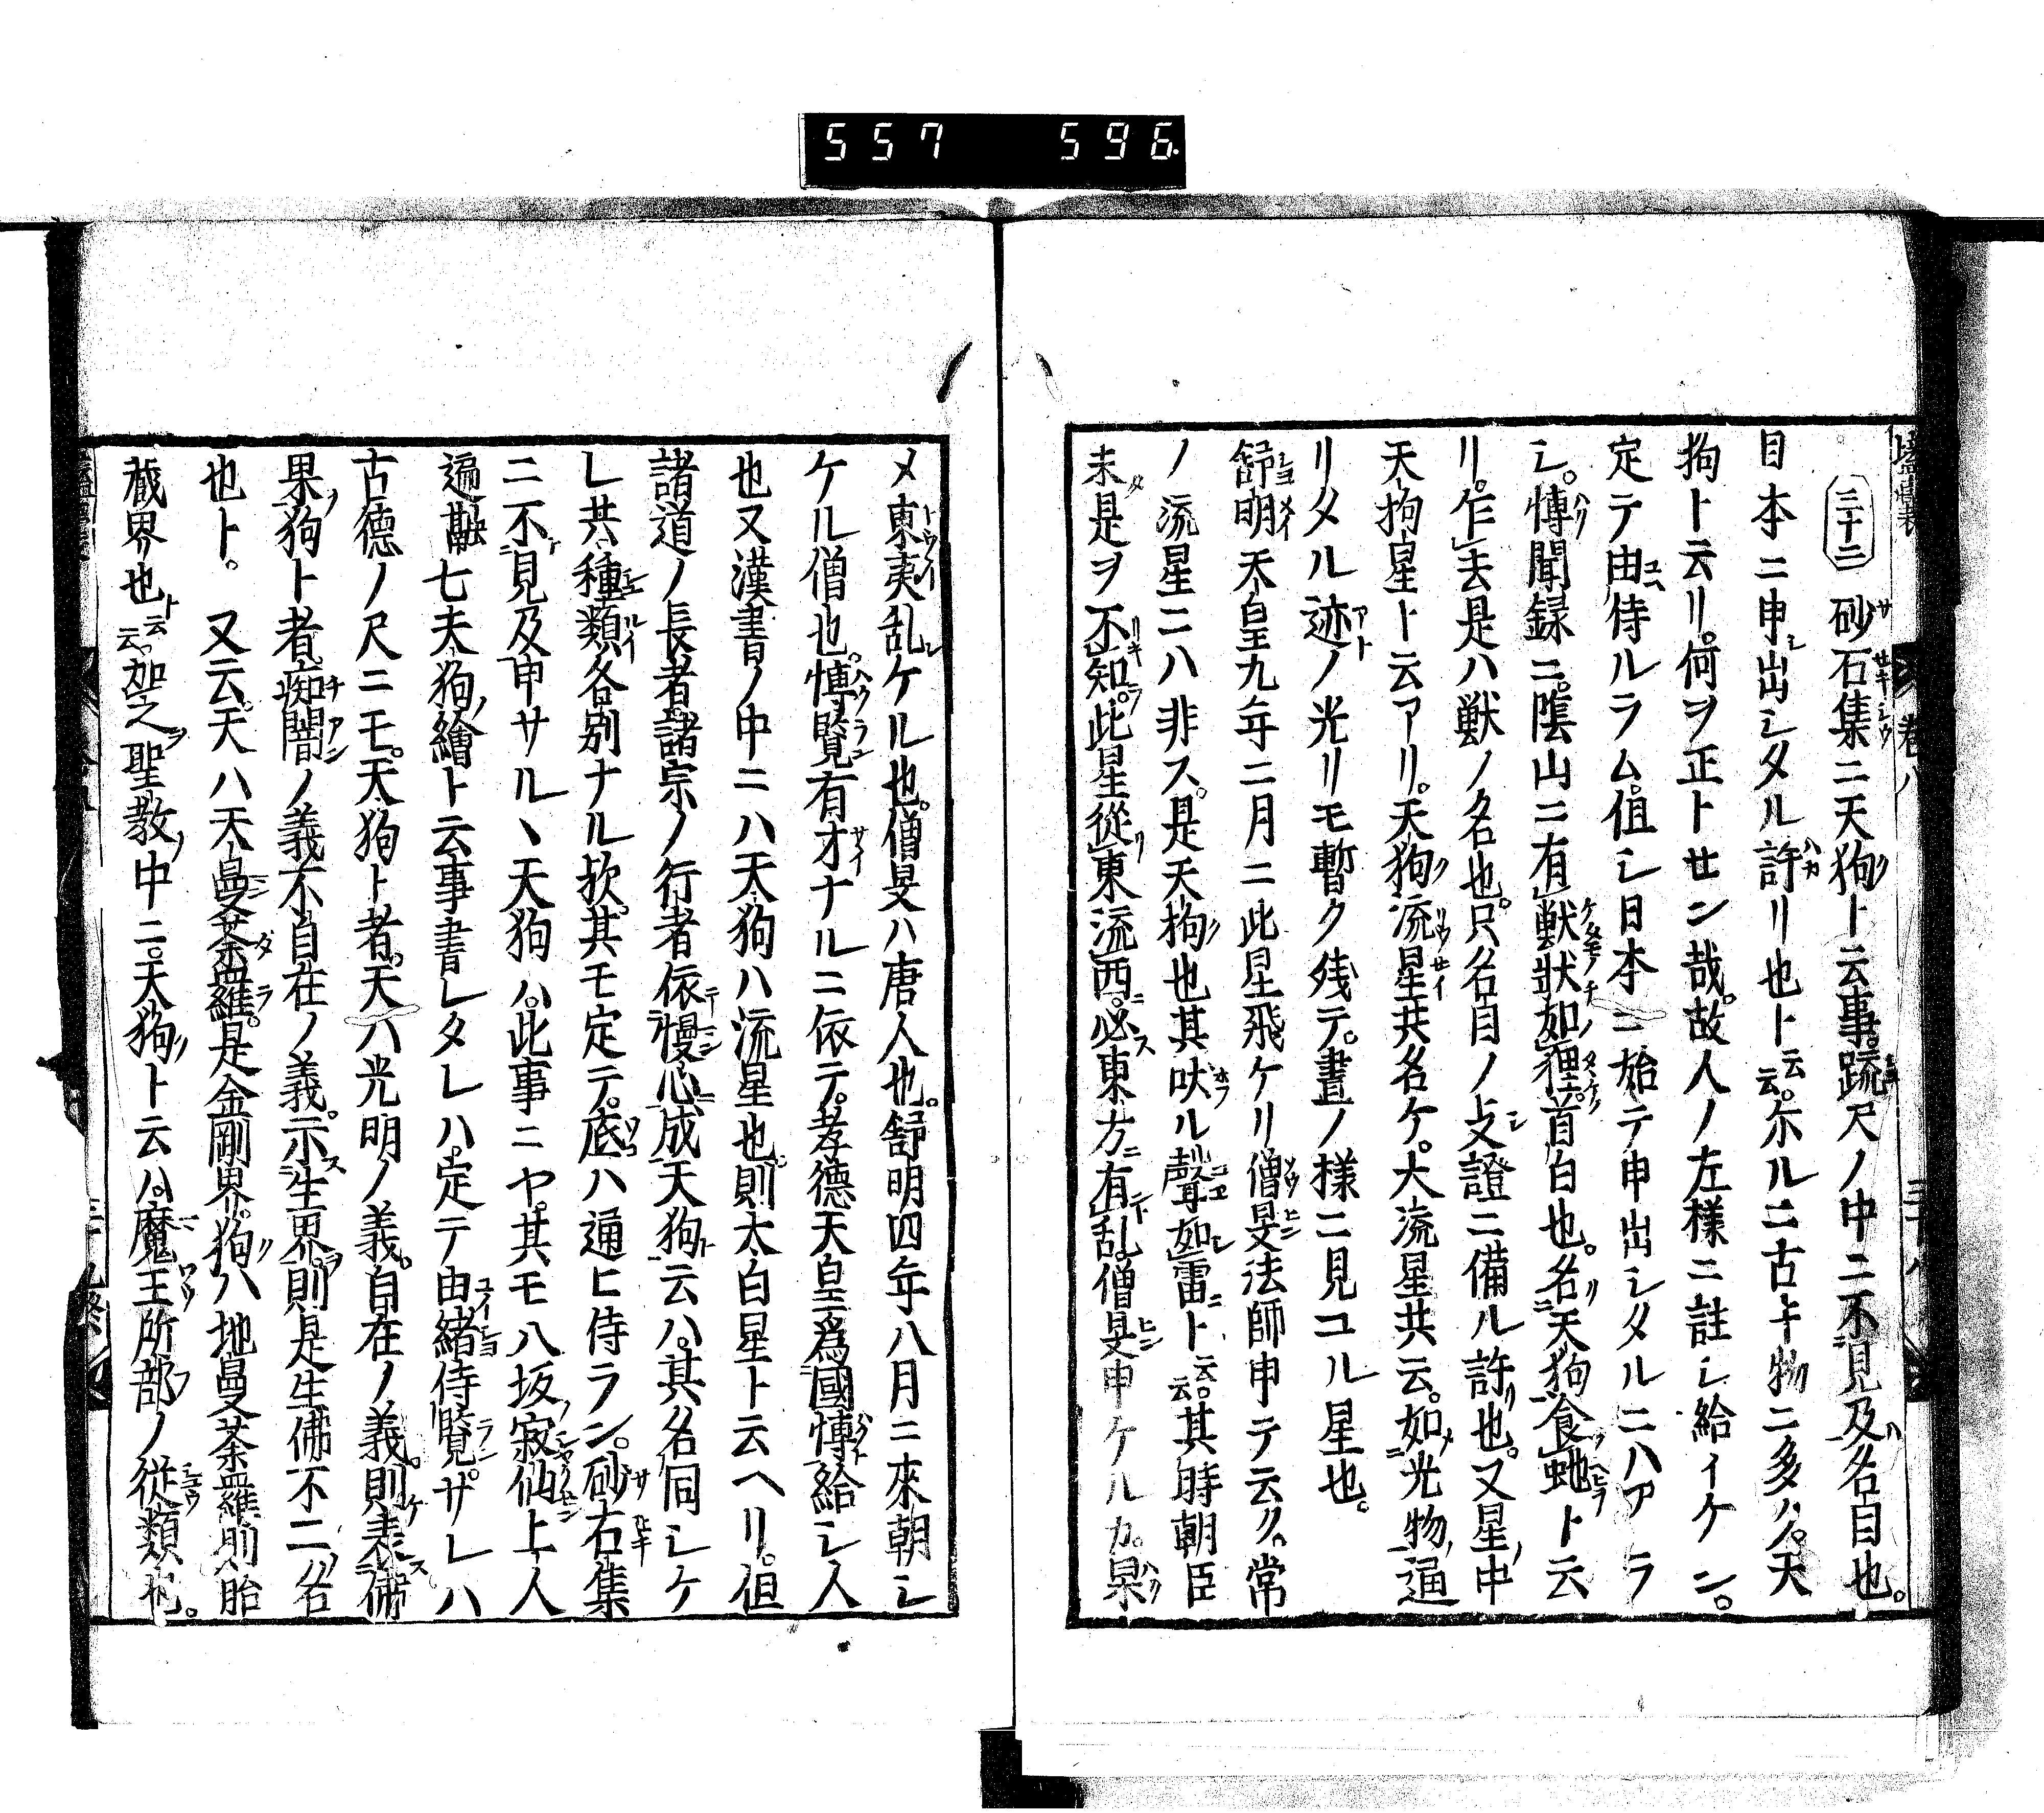 557 596
三十二 砂石集ニ天狗ト云事。䟽尺ノ中ニ不見及名目也。
日本ニ申出シタル許リ也ト云云。尓ルニ古キ物ニ多ハ。天
狗ト云リ。何ヲ正トセン哉。故人ノ左様ニ註シ給イケン。
定テ由侍ルラム。但シ日本ニ始テ申出シタルニハアラ
シ。博聞録ニ。陰山ニ有獣状如狸。首白也。名天狗食虵ト云
リ。乍去是ハ獣ノ名也。只名目ノ支證ニ備ル許也。又星ノ中
天狗星ト云アリ。天狗流星共名ケ。大流星共云。如光物通
リタル迹ノ光リモ暫ク残テ。晝ノ様ニ見コル星也。
舒明天皇九年二月ニ此星飛ケリ僧旻法師申テ云ク。常
ノ流星ニハ非ス。是天狗也其吠ル聲如雷ト云云。其時朝臣
未是ヲ不知。此星從東流西。必東方有乱。僧旻申ケルカ。果
メ東夷乱ケル也。僧旻ハ唐人也。舒明四年八月ニ來朝シ
ケル僧也。博覧有才ナルニ依テ。孝德天皇爲國博給シ人
也又漢書ノ中ニハ天狗ハ流星也。則太白星ト云ヘリ。但
諸道ノ長者。諸宗ノ行者依慢心成天狗云ハ。其名同シケ
レ共。種類各別ナル欤。其モ定テ。底ハ通ヒ侍ラン。砂石集
ニ不見及申サル丶天狗ハ。此事ニヤ。其モ八坂寂仙上人
遍融七天狗繪ト云事書レタレハ。定テ由緒侍覧サレハ
古德ノ尺ニモ。天狗ト者。天ハ光明ノ義。自在ノ義。則表佛
果。狗ト者。痴闇ノ義不自在ノ義。示生界。則是生佛不二ノ名
也ト。又云。天ハ天曼荼羅。是金剛界。狗ハ地曼荼羅則胎
蔵界也ト云云。加之聖教ノ中ニ。天狗ト云ハ。魔王所部ノ従類也。